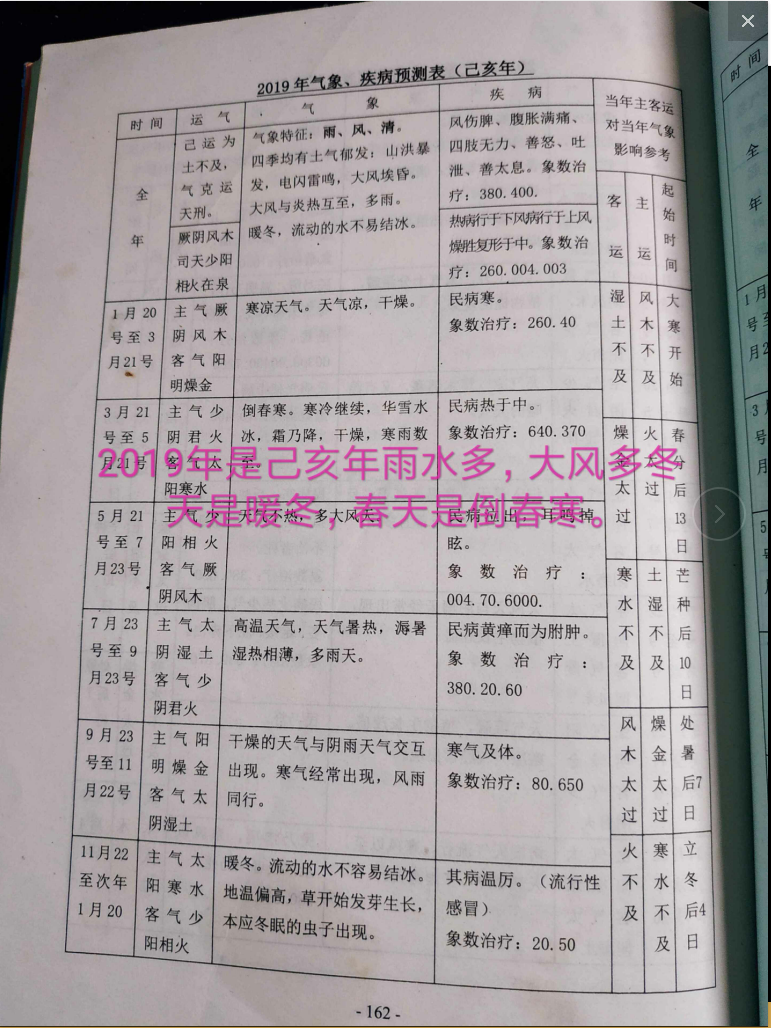 2019年气象、疾病预测表（己亥年）
时间
运气
气象
疾病
当年主客运
对当年气象
影响参考
全
年
己运为
土不及，
气克运
天刑。
厥阴风木
司天少阳
相火在泉
气象特征：雨、风、清。
四季均有土气郁发：山洪暴
发，电闪雷鸣，大风埃昏。
大风与炎热互至，多雨。
暖冬，流动的水不易结冰。
风伤脾、腹胀满痛、
四肢无力、善怒、吐
泄、善太息。象数治
疗：380.400.
热病行于下风病行于上风
燥胜复形于中。象数治
疗：260.004.003
客运
主运
起始时间
1月20
号至3
月21号
主气厥
阴风木
客气阳
明燥金
寒凉天气。天气凉，干燥。
民病寒。
象数治疗：260.40
湿土不及
风木不及
大寒开始
3月21
号至5
月21号
主气少
阴君火
客气太
阳寒水
倒春寒。寒冷继续，华雪水
冰，霜乃降，干燥，寒雨数
至。
民病热于中。
象数治疗：640.370
燥金太过
火太过
春分后13日
2019年是己亥年雨水多，大风多冬
天是暖冬，春天是倒春寒。
5月21
号至7
月23号
主气少
阳相火
客气厥
阴风木
天气不热，多大风天。
民病泣出，耳鸣掉
眩。
象数治疗：
004.70.6000.
寒水不及
土湿不及
芒种后10日
7月23
号至9
月23号
主气太
阴湿土
客气少
阴君火
高温天气，天气暑热，溽暑
湿热相薄，多雨天。
民病黄瘅而为胕肿。
象数治疗：
380.20.60
9月23
号至11
月22号
主气阳
明燥金
客气太
阴湿土
干燥的天气与阴雨天气交互
出现。寒气经常出现，风雨
同行。
寒气及体。
象数治疗：80.650
风木太过
燥金太过
处暑后7日
11月22
至次年
1月20
主气太
阳寒水
客气少
阳相火
暖冬。流动的水不容易结冰。
地温偏高，草开始发芽生长，
本应冬眠的虫子出现。
其病温厉。（流行性
感冒）
象数治疗：20.50
火不及
寒水不及
立冬后4日
- 162 -
时间
全
年
1月
号至
月2
3月